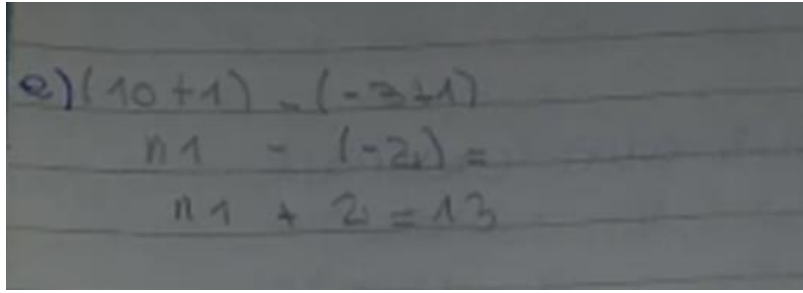 e) (10+1) - (-3+1)
11 - (-2) =
11 + 2 = 13